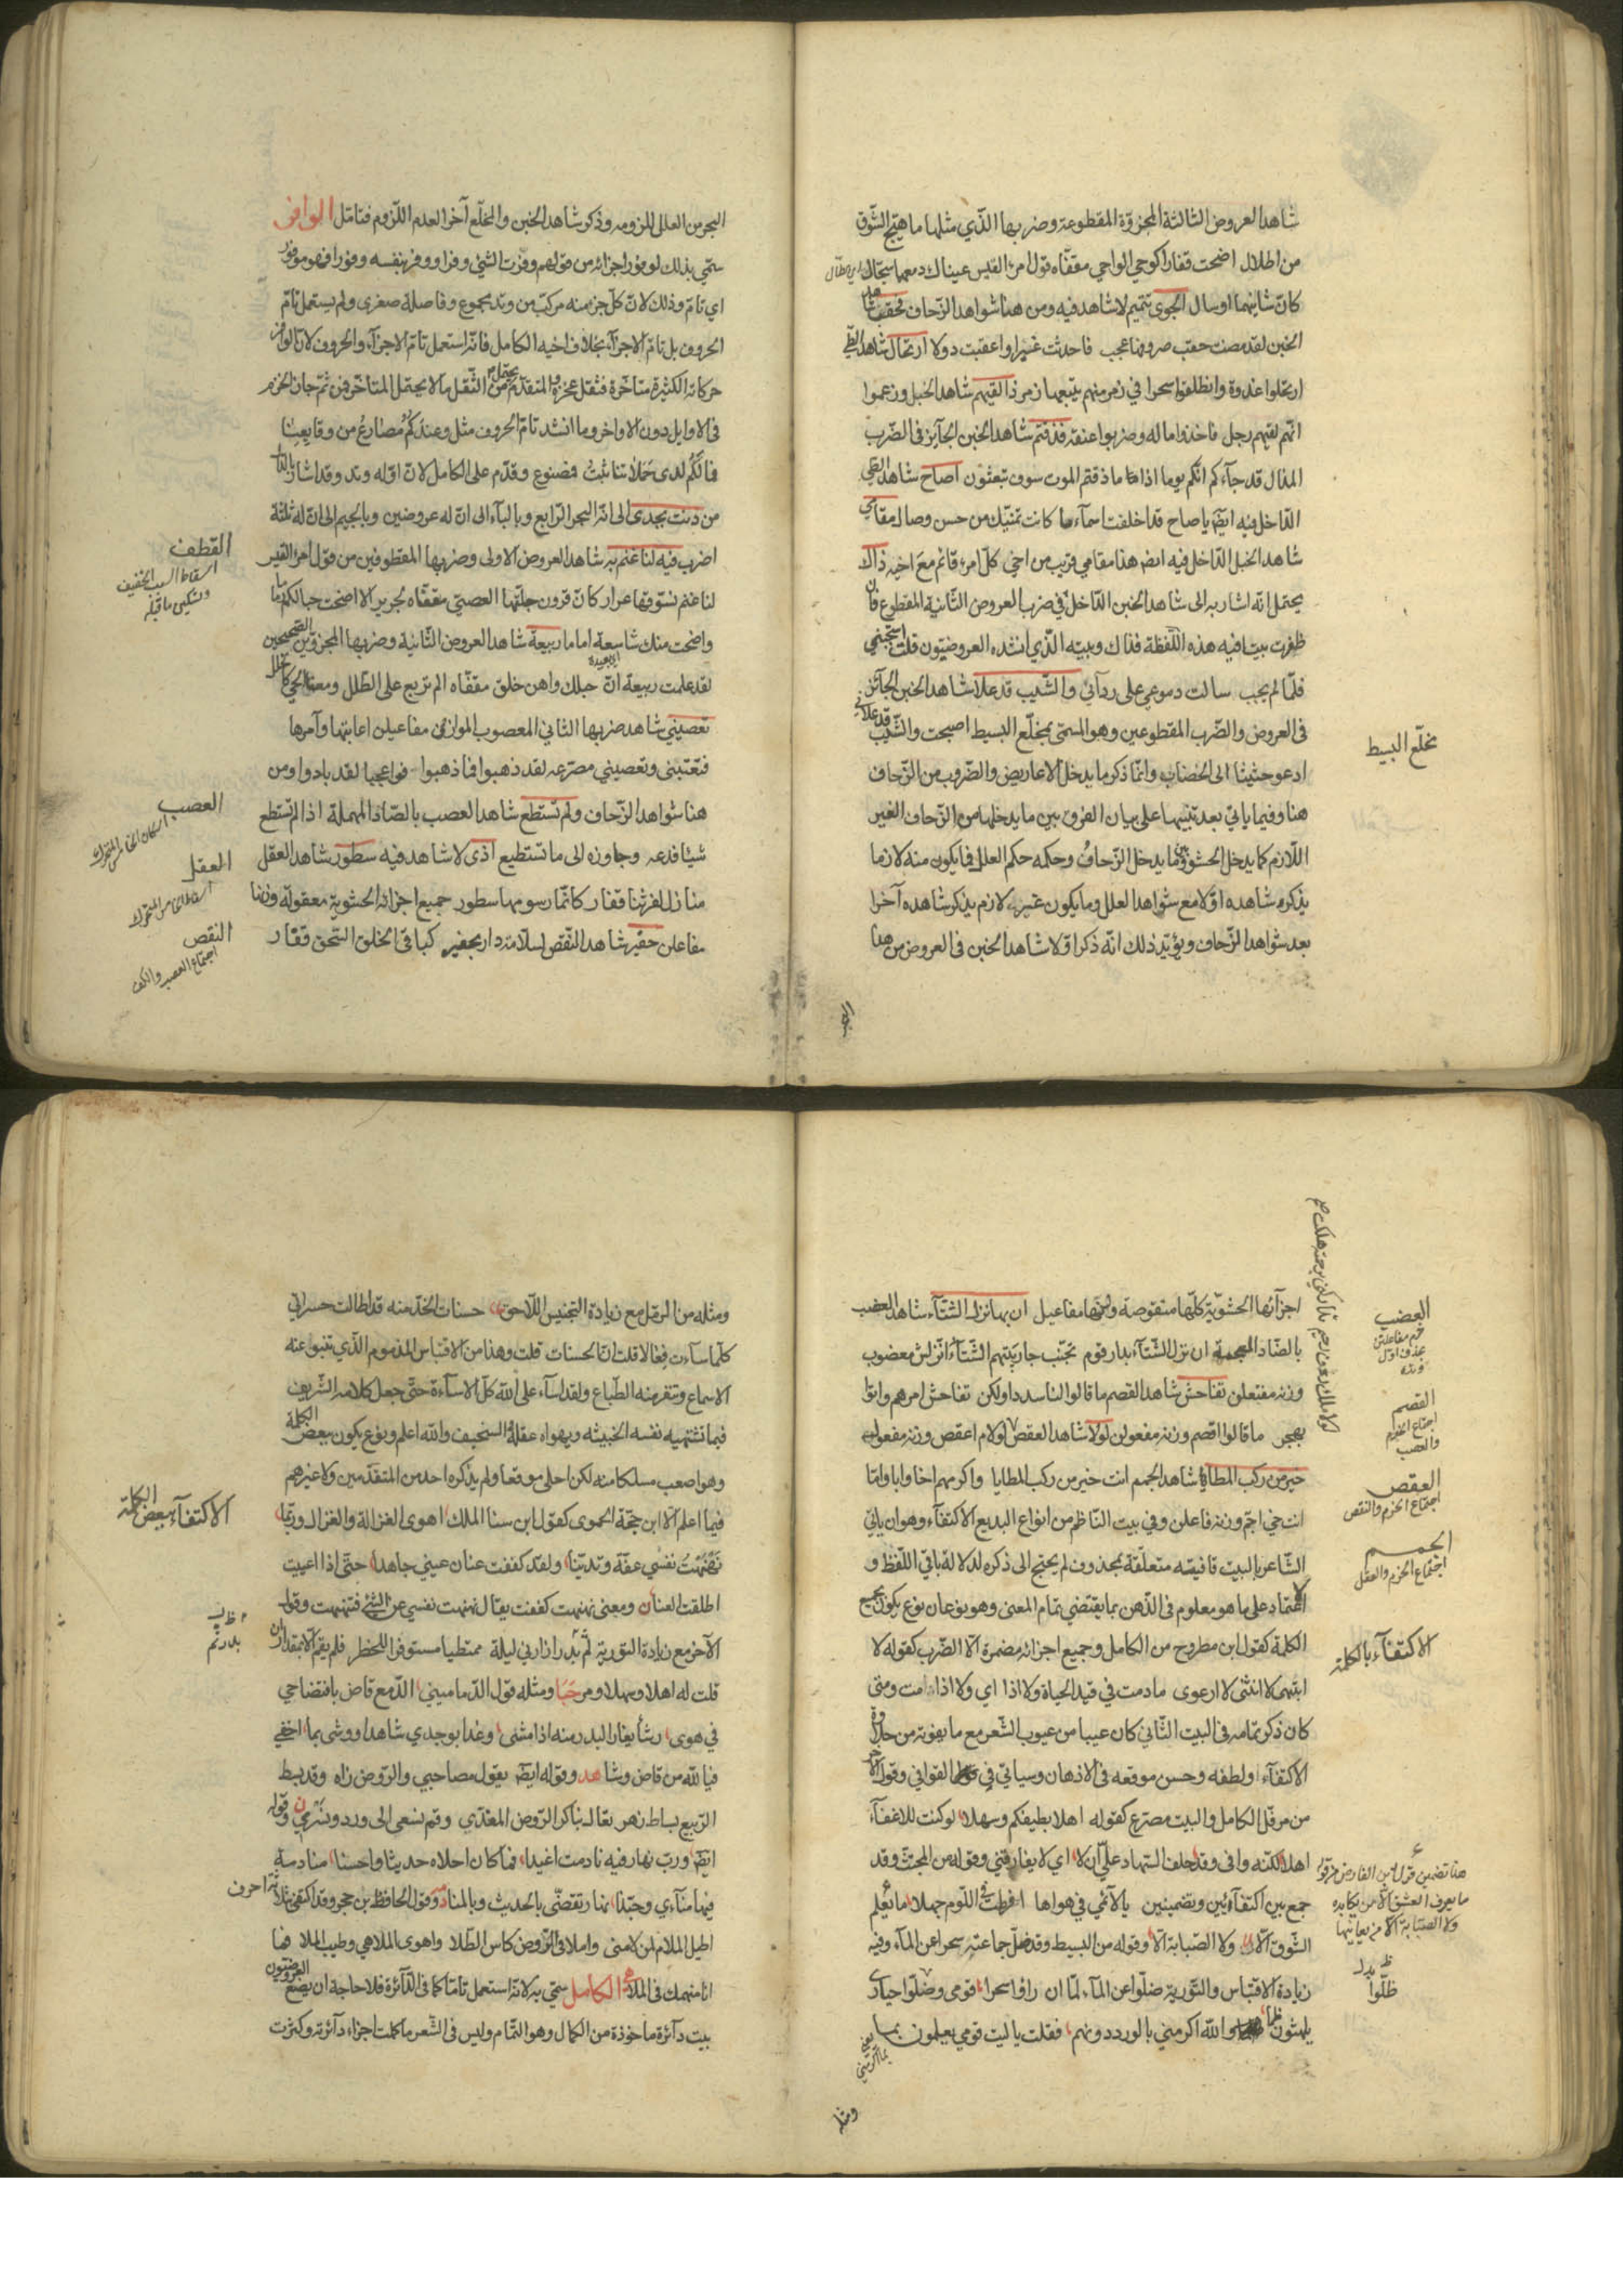 شاهد العروض الثالثة المجزوّة المقطوعة وضربها الذّي مثلها ما هيّج الشّوق
من اطلال اضحت قفارا كوحي الواحي مقفّاه قول امرء القيس عيناك دمعهما سجال
كانّ شانيهما اوسال الجوى تتميم لا شاهد فيه ومن هنا شواهد الزّحاف فحقب شاهد
الخبن لقد مضت حقب صروفها عجب فاحدثت غيرا واعقبت دولا ارتحال شاهد الطّي
ارتحلوا غدوة وانطلقوا سحرا في زمر منهم يتبعها زمر ذا لقيهم شاهد الخبل وزعموا
انّهم لقيهم رجل فاخذوا ماله وضربوا عنقه فذقتم شاهد الخبن الجآئز فى الضّرب
المذال قد جآءكم انّكم يوما اذا ما ذقتم الموت سوف تبعثون اصاح شاهد الطّي
الدّاخل فيه ايضا يا صاح قد اخلفت اسمآء ما كانت تمنّيك من حسن وصال مقامي
شاهد الخبل الدّاخل فيه ايض هذا مقامي قريب من اخي كلّ امرء قائم مع اخيه ذاك
يحتمل انّه اشار به الى شاهد الخبن الدّاخل في ضرب العروض الثّانية المقطوع فان
ظفرت ببيت فيه هذه اللّفظة فذاك وبيته الذّي انشده العروضيّون قلت استجيبي
فلمّا لم يجب سالت دموعي على ردآئي والشّيب قد علا شاهد الخبن الجآئز
فى العروض والضّرب المقطوعين وهو المسمّى بمخلّع البسيط اصبحت والشّيب قد علاني
ادعو حثيثا الى الخضاب وانّما ذكر ما يدخل الاعاريض والضّروب من الزّحاف
هنا وفيما ياتي بعد تنبيها على بيان الفرق بين ما يدخلها من الزّحاف الغير
اللّازم كما يدخل الحشو وبين ما يدخل الزّحاف وحكمه حكم العلل فما يكون منه لازما
يذكره شاهده اوّلا مع شواهد العلل وما يكون غير لازم يذكر شاهده آخرا
بعد شواهد الزّحاف ويؤيّد ذلك انّه ذكر اوّلا شاهد الخبن فى العروض من هذا
مخلّع البسيط
البحر من العلل للزومه وذكر شاهد الخبن والمخلّع آخرا لعدم اللّزوم فتامّل الوافر
سمّي بذلك لوفور اجزائه من قولهم وفرت الشئ وفرا ووفر بنفسه وفورا فهو موفور
اي تامّ وذلك لانّ كلّ جزء منه مركّب من وتد مجموع وفاصلة صغرى ولم يستعمل تامّ
الحروف بل تامّ الاجزآء بخلاف اخيه الكامل فانّه استعمل تامّ الاجزآء والحروف لانّ الوافر
حركاته الكثيرة متاخّرة فثقل عجزه والمتقدّم يحتمل من الثّقل ما لا يحتمل المتاخّر فمن ثمّ جاز الخرم
فى الاوايل دون الاواخر وما انشد تامّ الحروف مثل وعندكم مصارع من وقايعنا
فما لكم لدى حملاتنا ثبت فمصنوع وقدّم على الكامل لانّ اوّله وتد وقد اشار بالدّال
من دنت بجدى الى انّه البحر الرّابع وبالبآء الى انّ له عروضين وبالجيم الى انّ له ثلثة
اضرب فيه لنا غنم به شاهد العروض الاولى وضربها المقطوفين من قول امرء القيس
لنا غنم نسوّقها غزار كانّ قرون جلّتها العصيّ مقفّاه لجرير الا اضحت حبالكم رماما
واضحت منك شاسعة اماما ربيعة شاهد العروض الثّانية وضربها المجزوّين الصّحيحين
لقد علمت ربيعة انّ حبلك واهن خلق مقفّاه الم تربع على الطّلل ومعنا الحيّ كالخلل
تعصيني شاهد ضربها الثاني المعصوب الموازن مفاعيلن اعاتبها وآمرها
فتغتبني وتعصيني مصرّعه لقد ذهبوا فما ذهبوا فواعجبا لقد بادوا ومن
هنا شواهد الزّحاف ولم تستطع شاهد العصب بالصّاد المهملة اذا لم تستطع
شيئا فدعه وجاوزه الى ما تستطيع اذى لا شاهد فيه سطور شاهد العقل
منازل لفرتنا قفار كانّما رسومها سطور جميع اجزائه الحشوية معقولة وزنها
مفاعلن حقير شاهد النّقص لسلّامة دار بحفير كباقي الخلق السّحق قفار
القطف
اسقاط السبب الخفيف
وتسكين ما قبله
العصب
اسكان الخامس المتحرك
العقل
اسقاط الخامس المتحرك
النقص
اجتماع العصب والكف
اجزآئها الحشويّة كلّها منقوصة وزنها مفاعيل ان بها نزل الشتآء شاهد العضب
بالضّاد المعجمة ان نزل الشتآء بدار قوم تجنّب جار بيتهم الشّتآء انزلش معضوب
وزنه مفتعلن تفاحش شاهد القصم ما قالوا لنا سددا ولكن تفاحش امرهم واتوا
بهجر ما قالوا اقصم وزنه مفعولن لولا شاهد العقص لولام اعقص وزنه مفعول
خير من ركب المطايا شاهد الجمم انت خير من ركب المطايا واكرمهم اخا وابا وامّا
انت خي اجمّ وزنه فاعلن وفي بيت النّاظم من انواع البديع الاكتفآء وهو ان ياتي
الشّاعر بالبيت قافيته متعلّقة بمحذوف لم يحتج الى ذكره لدلالة باقي اللّفظ و
الاعتماد على ما هو معلوم فى الذّهن بما يقتضي تمام المعنى وهو نوعان نوع يكون بجميع
الكلمة كقول ابن مطروح من الكامل وجميع اجزائه مضمرة الّا الضّرب كقوله لا
انتهى لا انثنى لا ارعوى ما دمت في قيد الحياة ولا اذا اي ولا اذا مت ومتى
كان ذكر تمامه فى البيت الثّاني كان عيبا من عيوب الشّعر مع ما يفوته من حلاوة
الاكتفآء ولطفه وحسن موقعه فى الاذهان وسياتي في القوافي وقول الآخر
من مرفّل الكامل والبيت مصرّع كقوله اهلا بطيفكم وسهلا لو كنت للاغفآء
اهلا لكنّه وافى وقد حلف السّهاد علىّ ان لا اي لا يفارقني وقوله من المجتثّ وقد
جمع بين اكتفآءين وتضمينين يا لآئمي في هواها افرطت في اللّوم جهلا ما يعلم
الشّوق الّا ولا الصّبابة الّا وقوله من البسيط وقد ضلّ جماعته سحرا عن المآء وفيه
زيادة الاقتباس والتّورية ضلّوا عن المآء لمّا ان راوا سحرا قومى وضلّوا حيارى
يلهثون ظما والله اكرمني بالورد دونهم فقلت يا ليت قومي يعلمون بما
يعني بما اكرمني
العضب
خرم مفاعلتن
القصم
اجتماع الخرم
والعصب
العقص
اجتماع الخرم والنقص
الجمم
اجتماع الخرم والعقل
الاكتفآء بالكلمة
هنا تضمين قول ابن الفارض
ما يعرف العشق الّا من يكابده
ولا الصّبابة الّا من يعانيها
ظلّوا
ومثله
ومثله من الرمل مع زيادة التجنيس اللّاحق حسنات الخدّ منه قد اطالت حسراتي
كلّما سآءت فعالا قلت انّ الحسنات قلت وهذا من الاقتباس المذموم الذّي تنبو عنه
الاسماع وتنفر منه الطّباع ولقد اسآء على الله كلّ الاسآءة حتّى جعل كلامه الشّريف
فيما تشتهيه نفسه الخبيثه ويهواه عقله السخيف والله اعلم ونوع يكون ببعض الكلمة
وهو اصعب مسلكا منه لكن احلى موقعا ولم يذكره احد من المتقدّمين ولا غيرهم
فيما اعلم الّا ابن حجّة الحموى كقول ابن سنا الملك اهوى الغزالة والغزال وربّما
نهنهت نفسي عفّة وتديّنا ولقد كففت عنان عيني جاهدا حتّى اذا اعييت
اطلقت العنان ومعنى نهنهت كففت يقال نهنهت نفسي عن الشّئ فتنهنهت وقول
الآخر مع زيادة التورية لم بدر زارني ليلة ممتطيا مستوفزا للخطر فلم يقم الّا بمقدار ان
قلت له اهلا وسهلا ومرحبا ومثله قول الدّماميني الدّمع قاض بافتضاحي
في هوى رشأ يغار البدر منه اذا مشى وغدا بوجدي شاهدا ووشى بما اخفي
فيا لله من قاض وشاهد وقوله ايضا يقول مصاحبي والرّوض زاه وقد بسط
الرّبيع بساط زهر تعال نباكر الرّوض المفدّي وقم نسعى الى ورد ونسرين وقوله
ايضا ورب نهار فيه نادمت اغيدا فما كان احلاه حديثا واحسنا منادمة
فيها منآءي وحبّذا نهار تقضّى بالحديث وبالمنادمه وقول الحافظ بن حجر وقد اكتفى بثلاثة احرف
اطيل الملام لمن لامنى واملا فى الرّوض كاس الطّلا واهوى الملاهي وطيب الملا فها
انا منهمك في الملاح الكامل سمّي به لانّه استعمل تامّا كما فى الدّآئرة فلا حاجة ان يصنع العروضيّون
بيت دآئرة ماخوذة من الكمال وهو التّمام وليس فى الشّعر ما كملت اجزاء دآئرته وكثرت
الاكتفآء ببعض الكلمة